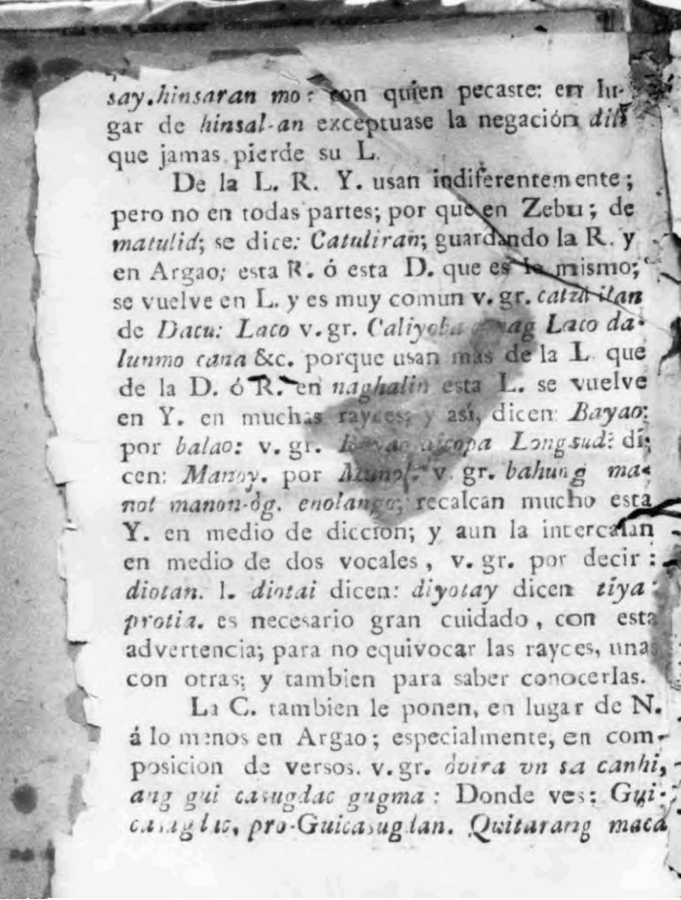 say.hinsaran mo: con quien pecaste: en lu-
gar de hinsal-an exceptuase la negación dili
que jamas pierde su L.
De la L. R. Y. usan indiferentemente;
pero no en todas partes; por que en Zebu; de
matulid; se dice: Catuliran; guardando la R. y
en Argao; esta R. ó esta D. que es lo mismo;
se vuelve en L. y es muy comun v. gr.
de Dacu: Laco v. gr. Laco da-
lunmo cana &c. porque usan mas de la L que
de la D. ó R. en naghalin esta L. se vuelve
en Y. en muchas rayces; y asi, dicen: Bayao:
por balao: v. gr. Longsud: di-
cen: Manoy. por v. gr. bahung ma-
not manon-óg. enolango; recalcan mucho esta
Y. en medio de diccion; y aun la intercalan
en medio de dos vocales, v. gr. por decir:
diotan. l. diotai dicen: diyotay dicen tiya:
protia. es necesario gran cuidado, con esta
advertencia; para no equivocar las rayces, unas
con otras; y tambien para saber conocerlas.
La C. tambien le ponen, en lugar de N.
á lo menos en Argao; especialmente, en com-
posicion de versos. v. gr. óvira vn sa canhi,
ang gui casugdac gugma: Donde ves: Gui-
pro-Guicasugdan. Quitarang maca